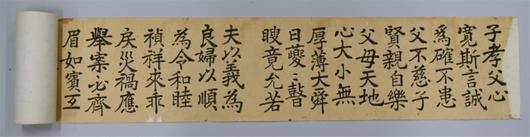 子孝父心
寬斯言誠
為確不患
父不慈子
賢親自樂
父母天地
心大小無
厚薄大舜
日夔夔瞽
瞍竟允若
夫以義為
良婦以順
為令和睦
禎祥來乖
戾災禍應
舉案必齊
眉如賓互